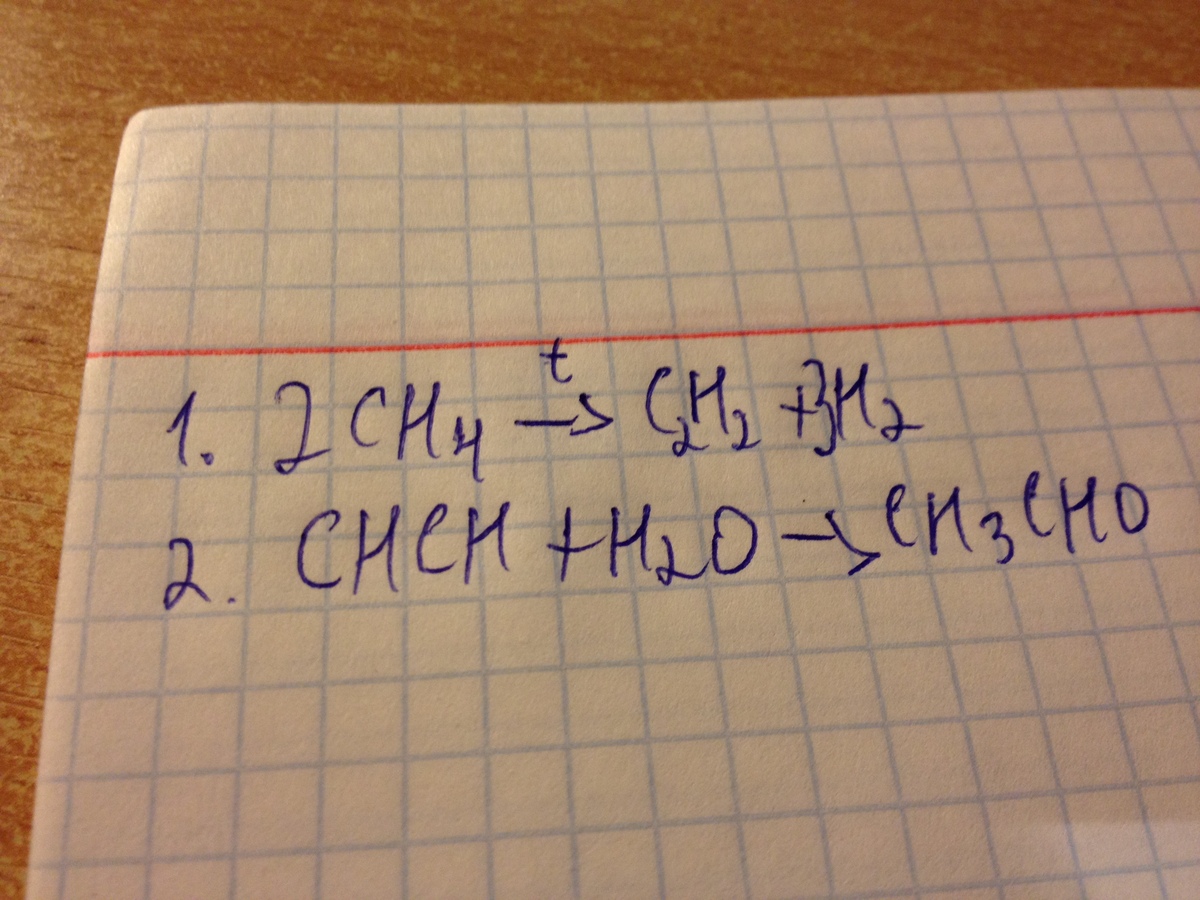 1. 2CH₄ →ᵗ C₂H₂ + 3H₂
2. CHCH + H₂O → CH₃CHO